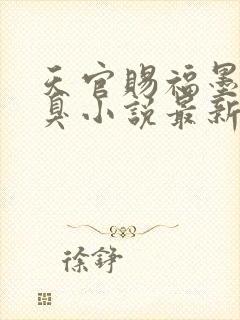 天官赐福墨
臭小说最新
徐铮